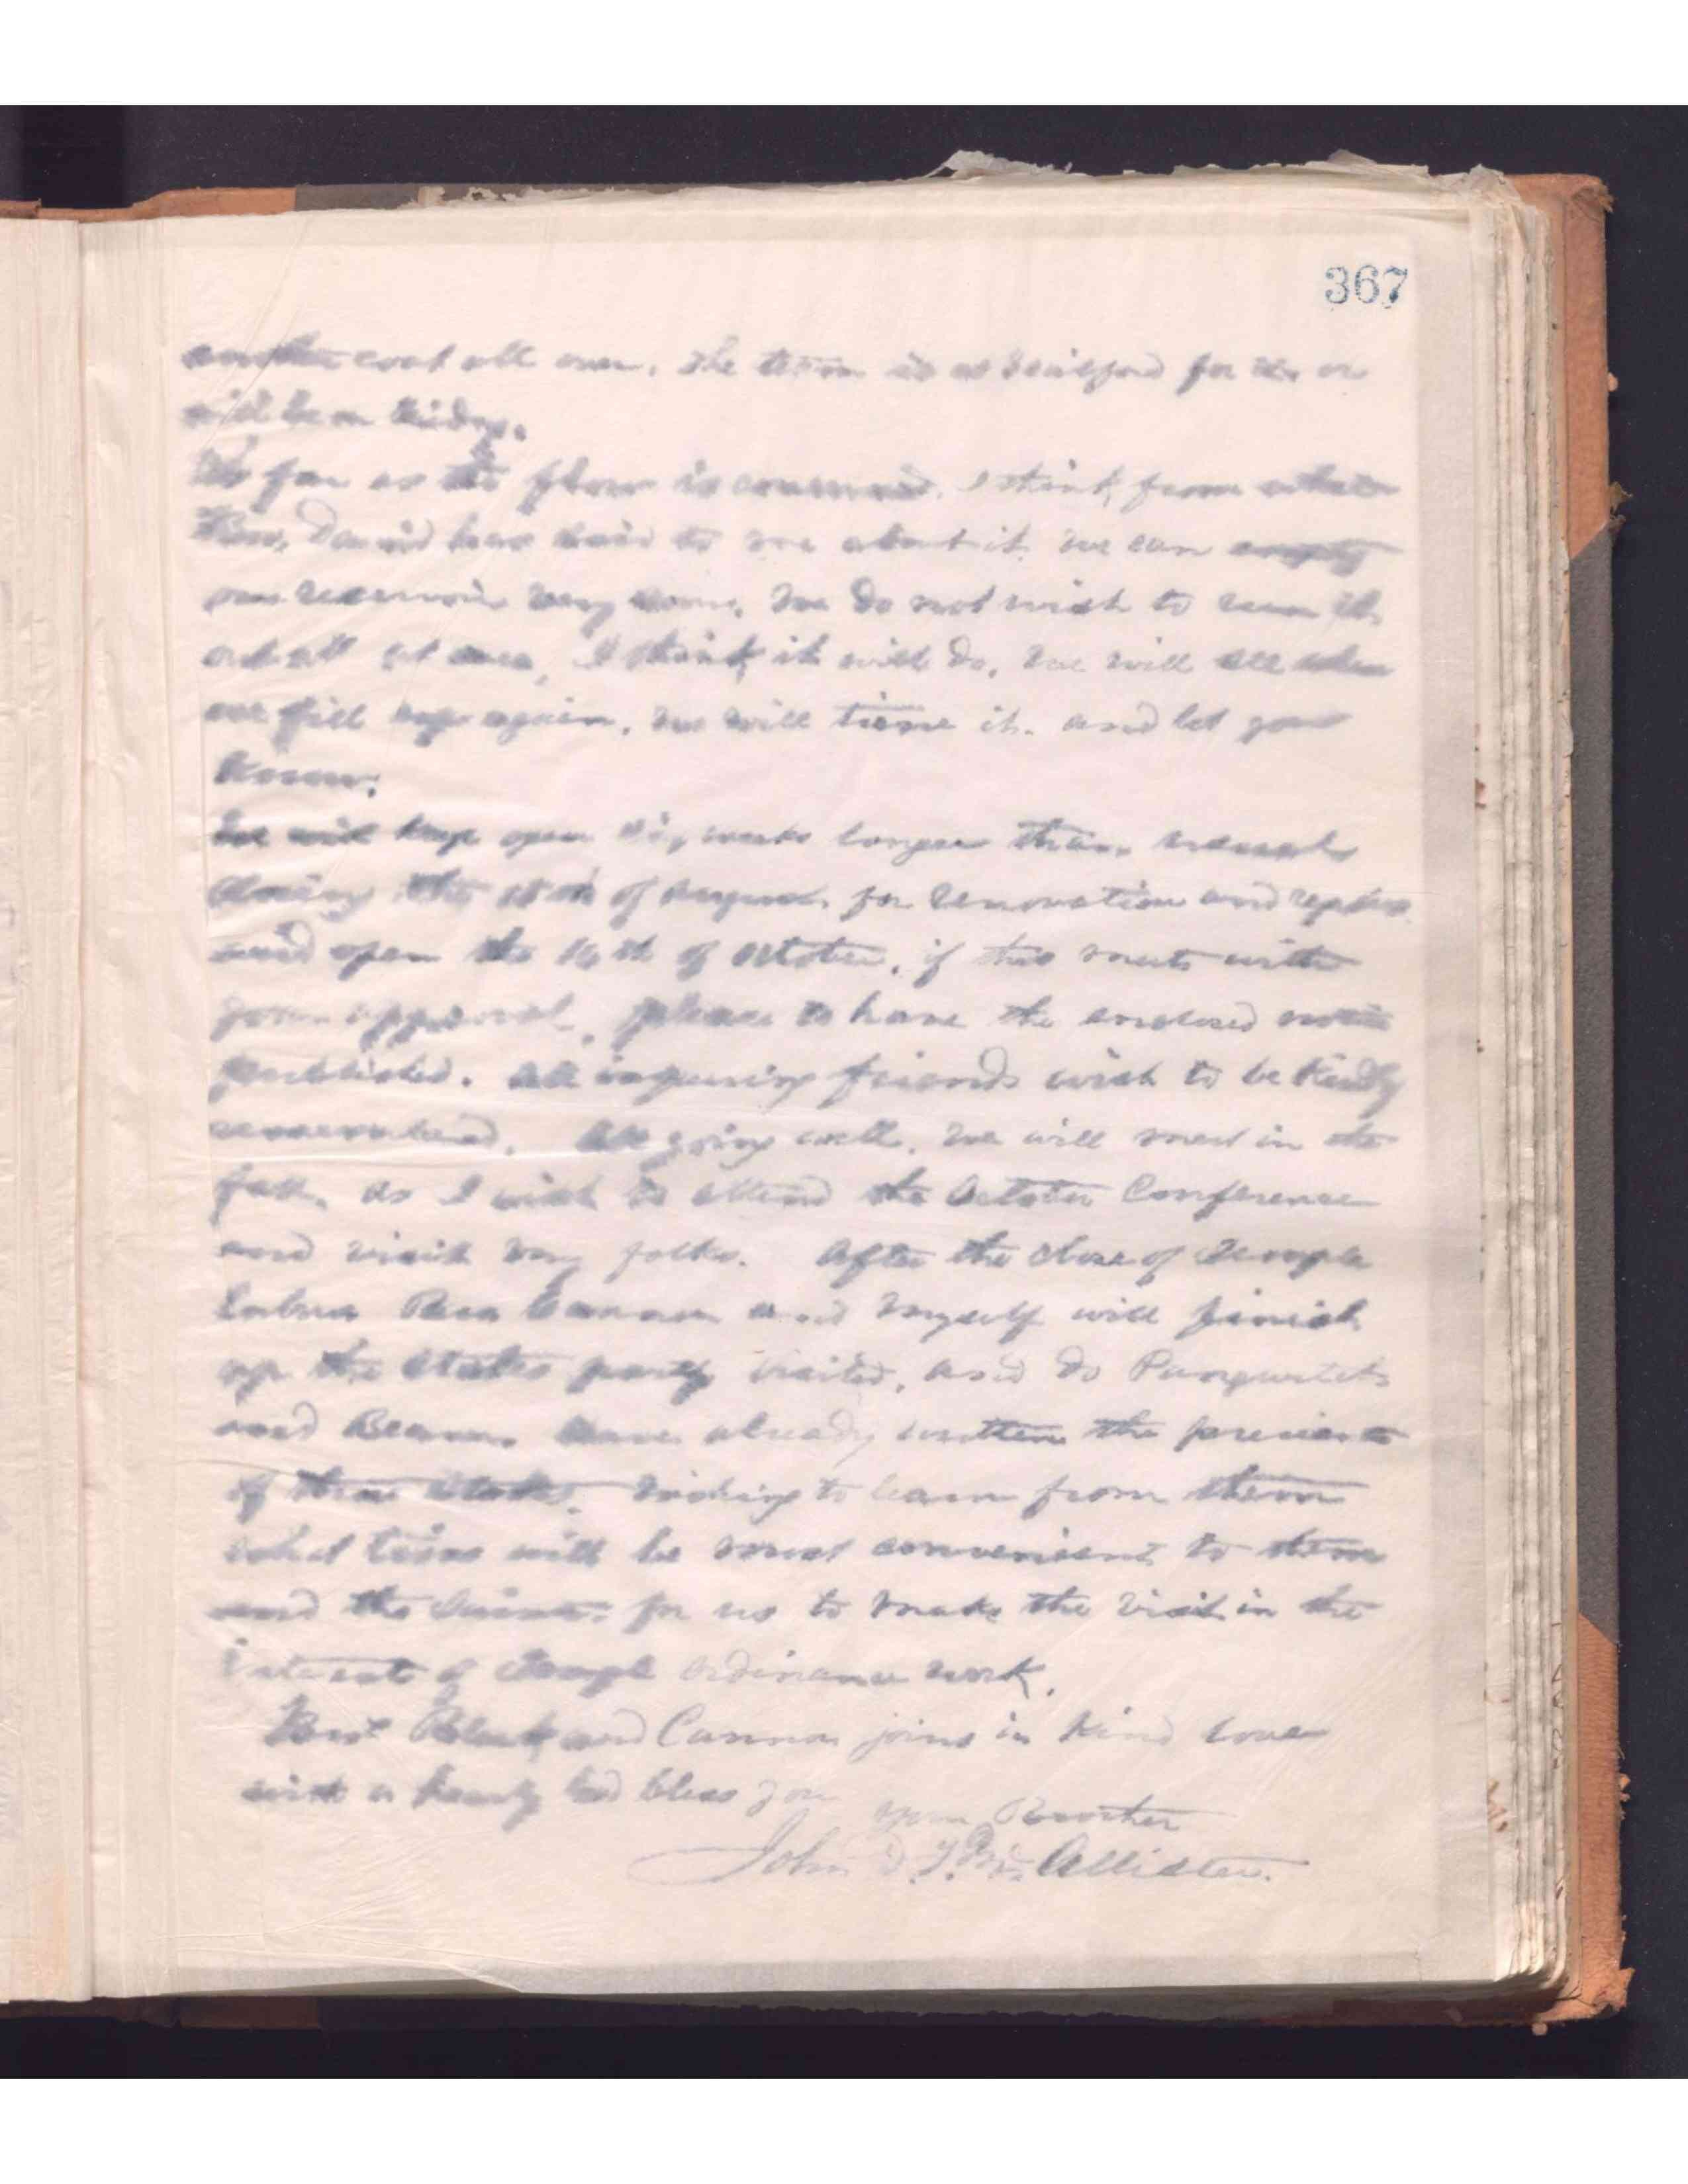 367
another coat all over. The team is at Milford for it, or
will be on Friday.
So far as the flow is concerned, I think from what
Bro. David has said to me about it we can empty
our reservoir very soon. We do not wish to run it
out all at once, I think it will do. We will see when
we fill up again. We will time it. and let you
know.
We will keep open six weeks longer than usual
closing the of August. for renovation and repairs
and open the of October, if this meets with
your approval, please to have the enclosed notice
published. All inquiring friends wish to be kindly
remembered. All going well, we will meet in the
fall, as I wish to attend the October Conference
and visit my folks. After the close of Temple
Labors Bro Cannon and myself will finish
up the Stakes partly visited, and do Panguitch
and Beaver. Have already written the presidents
of these Stakes. Wishing to learn from them
what time will be most convenient to them
and the Saints for us to make the visit in the
interests of Temple ordinance work.
Bros and Cannon joins in kind love
with a hearty God bless you
Your Brother
John D. T. Mc Allister.